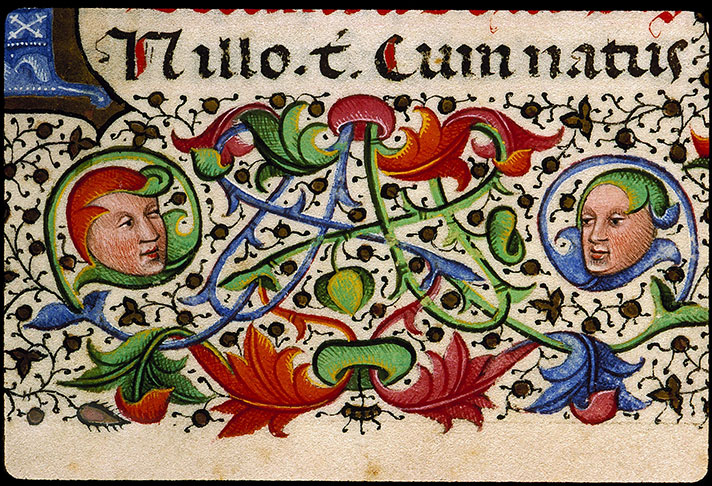 N illo. t̄. Cum natus